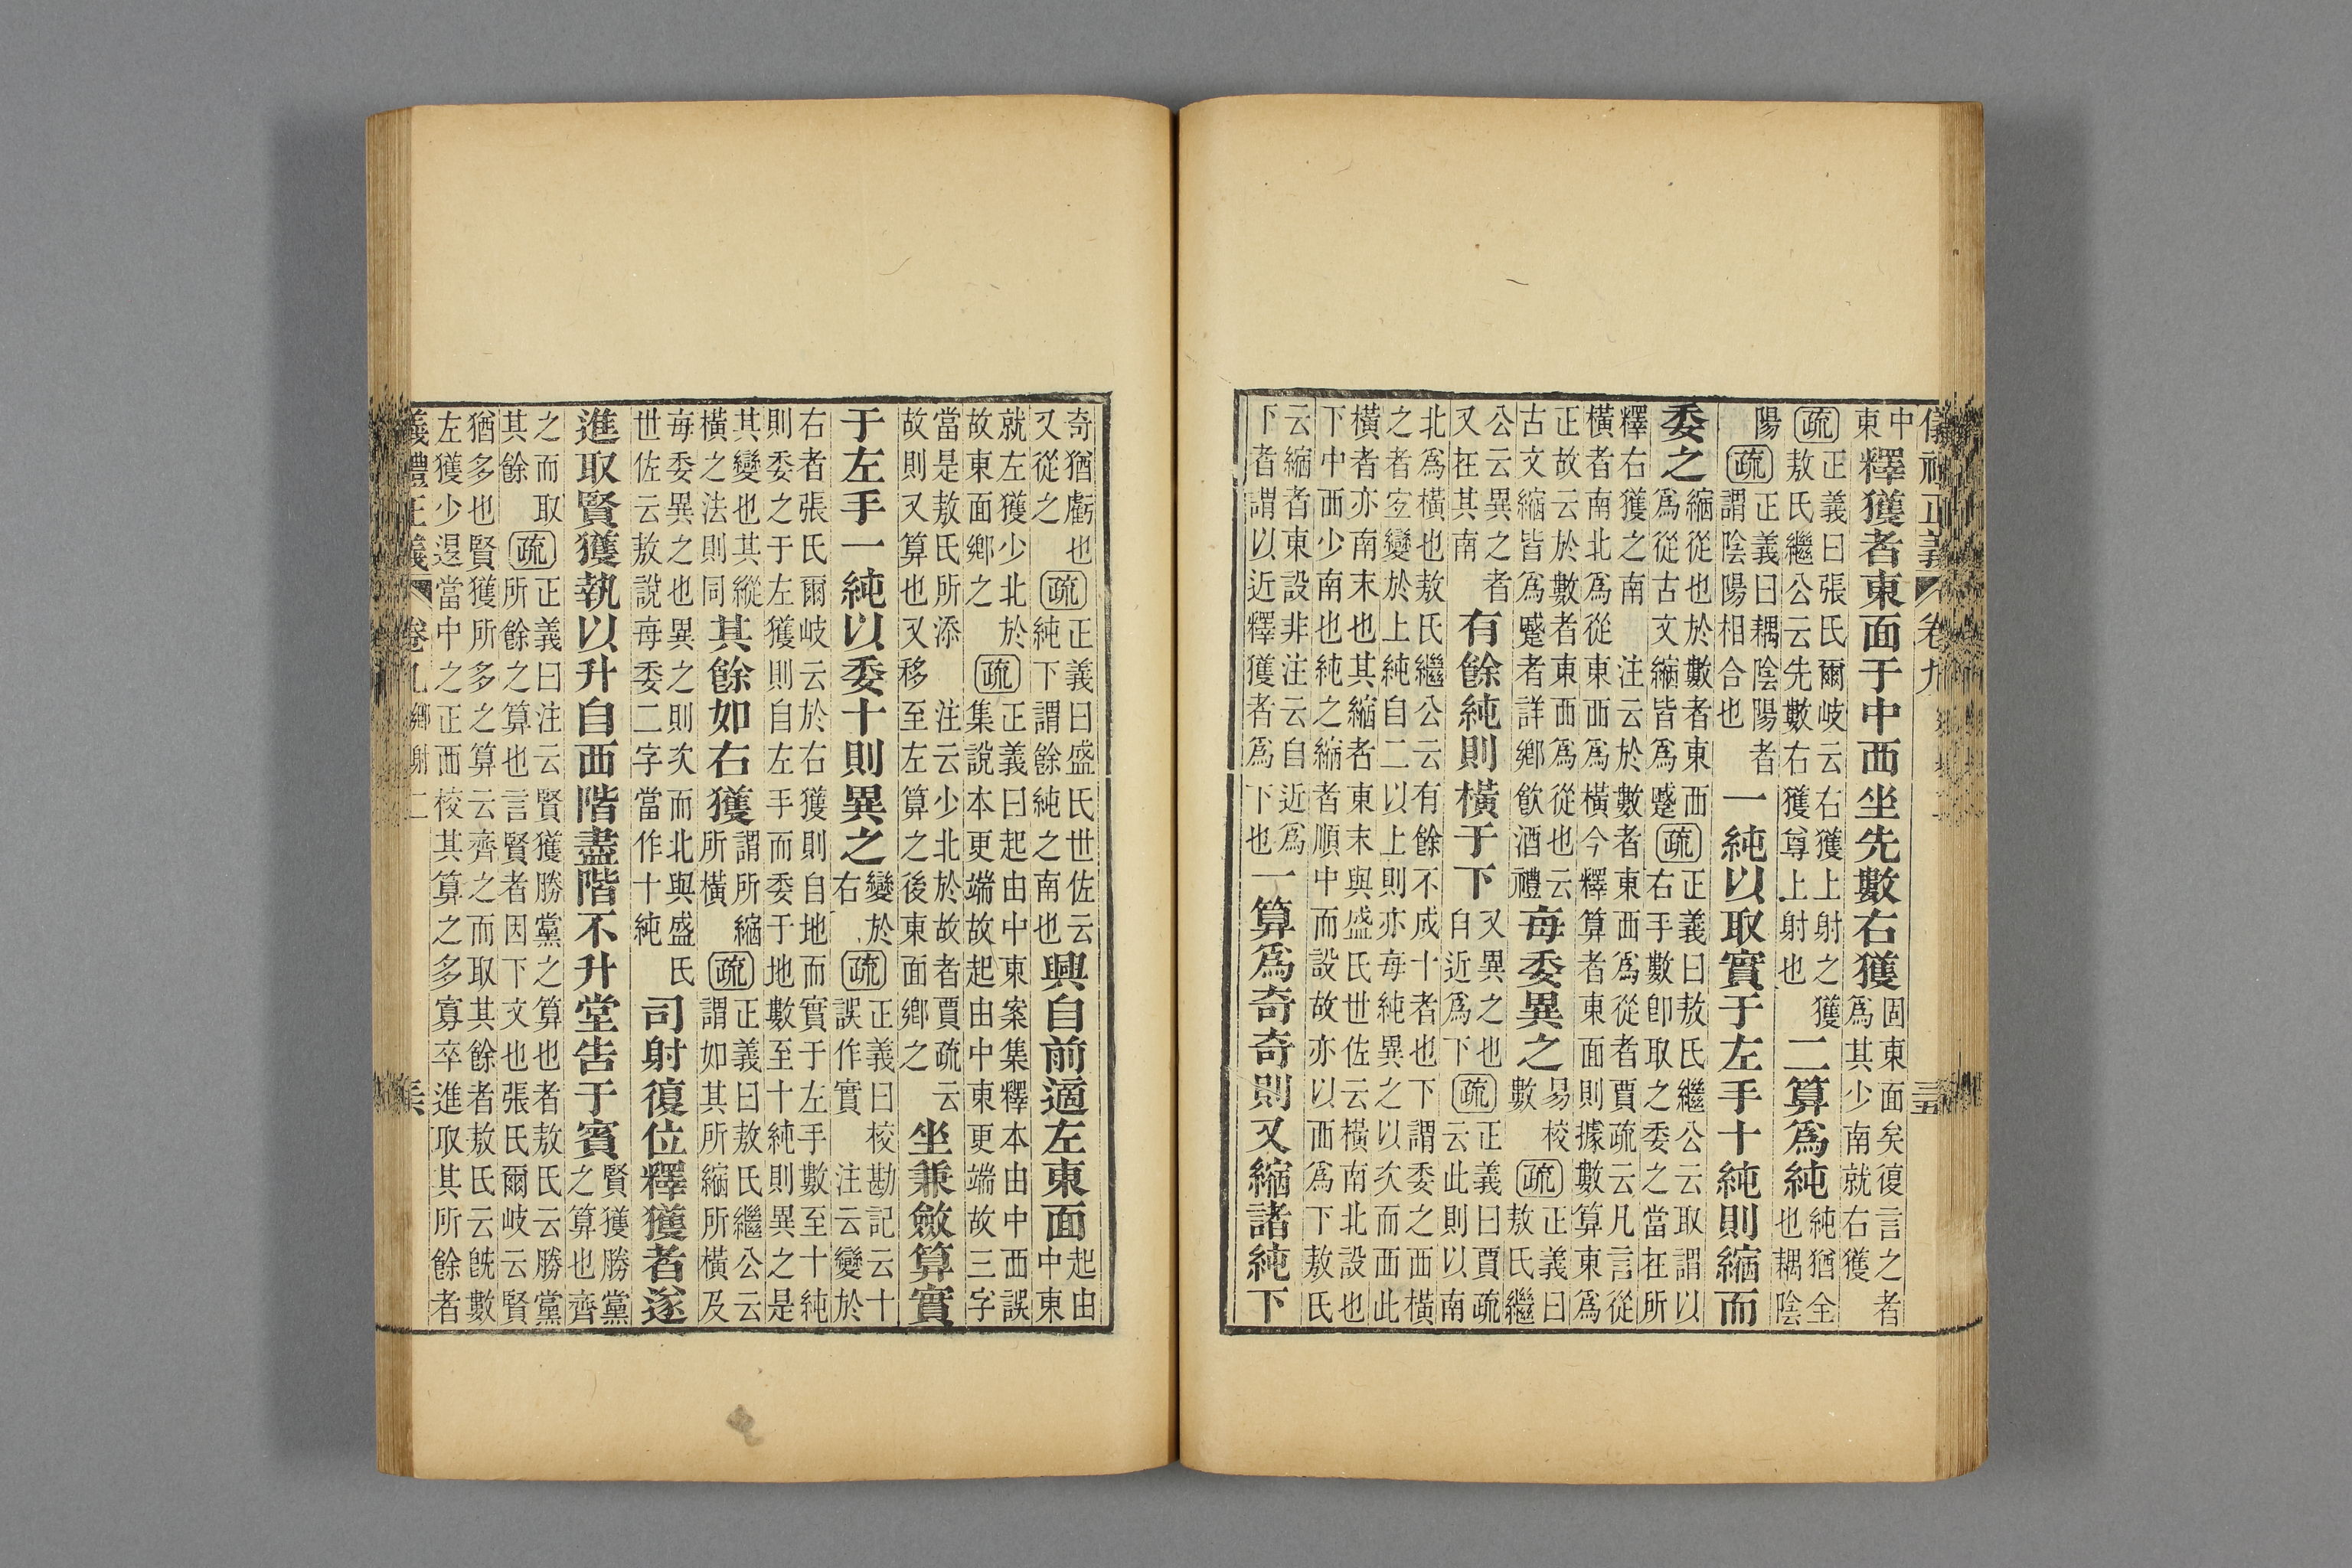 正義 卷九
中東釋獲者東面于中西坐先數右獲固東面矣復言之者爲其少南就右獲
疏正義曰張氏爾岐云右獲上射之獲敖氏繼公云先數右獲尊上射也二算爲純純猶全也耦陰
陽疏正義曰耦陰陽者謂陰陽相合也一純以取實于左手十純則縮而
委之縮從也於數者東西爲從古文縮皆爲蹙疏正義曰敖氏繼公云取謂以右手數卽取之委之當在所
釋右獲之南 注云於數者東西爲從者賈疏云凡言從橫者南北爲從東西爲橫今釋算者東面則據數算東爲
正故云於數者東西爲從也云古文縮皆爲蹙者詳鄉飲酒禮每委異之易校數疏正義曰敖氏繼
公云異之者又在其南有餘純則橫于下又異之也自近爲下疏正義曰賈疏云此則以南
北爲橫也敖氏繼公云有餘不成十者也下謂委之西橫之者宐變於上純自二以上則亦每純異之以次而西此
橫者亦南末也其縮者東末與盛氏世佐云橫南北設也下中西少南也純之縮者順中而設故亦以西爲下敖氏
云縮者東設非注云自近爲下者謂以近釋獲者爲下也一算爲奇奇則又縮諸純下
奇猶虧也又從之疏正義曰盛氏世佐云純下謂餘純之南也興自前適左東面起由中東
就左獲少北於故東面鄉之疏正義曰起由中東案集釋本由中西誤集說本更端故起由中東更端故三字
當是敖氏所添 注云少北於故者賈疏云故則又算也又移至左算之後東面鄉之坐兼斂算實
于左手一純以委十則異之變於右疏正義曰校勘記云十誤作實 注云變於
右者張氏爾岐云於右獲則自地而實于左手數至十純則委之于左獲則自左手而委于地數至十純則異之是
其變也其縱橫之法則同其餘如右獲謂所縮所橫疏正義曰敖氏繼公云謂如其所縮所橫及
每委異之也異之則次而北與盛氏世佐云敖說每委二字當作十純司射復位釋獲者遂
進取賢獲執以升自西階盡階不升堂告于賓賢獲勝黨之算也齊
之而取其餘疏正義曰注云賢獲勝黨之算也者敖氏云勝黨所餘之算也言賢者因下文也張氏爾岐云賢
猶多也賢獲所多之算云齊之而取其餘者敖氏云旣數左獲少退當中之正西校其算之多寡卒進取其所餘者
禮正義 卷九